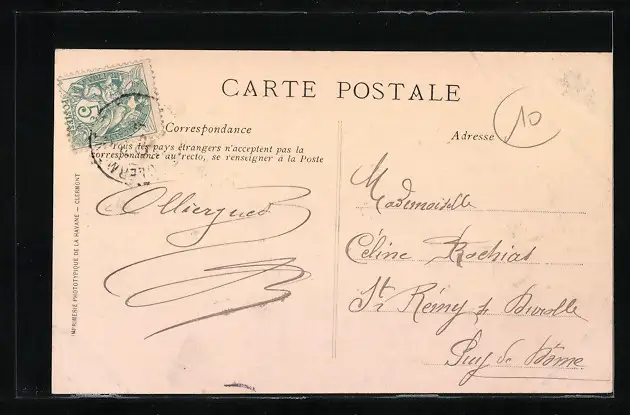 CARTE POSTALE
5
Correspondance
Tous les pays étrangers n'acceptent pas la
correspondance au recto, se renseigner à la Poste
Adresse
10
IMPRIMERIE PHOTOTYPIQUE DE LA HAVANE — CLERMONT
Mademoiselle
Céline Rochias
St Rémy s/ Durolle
Puy de Dôme